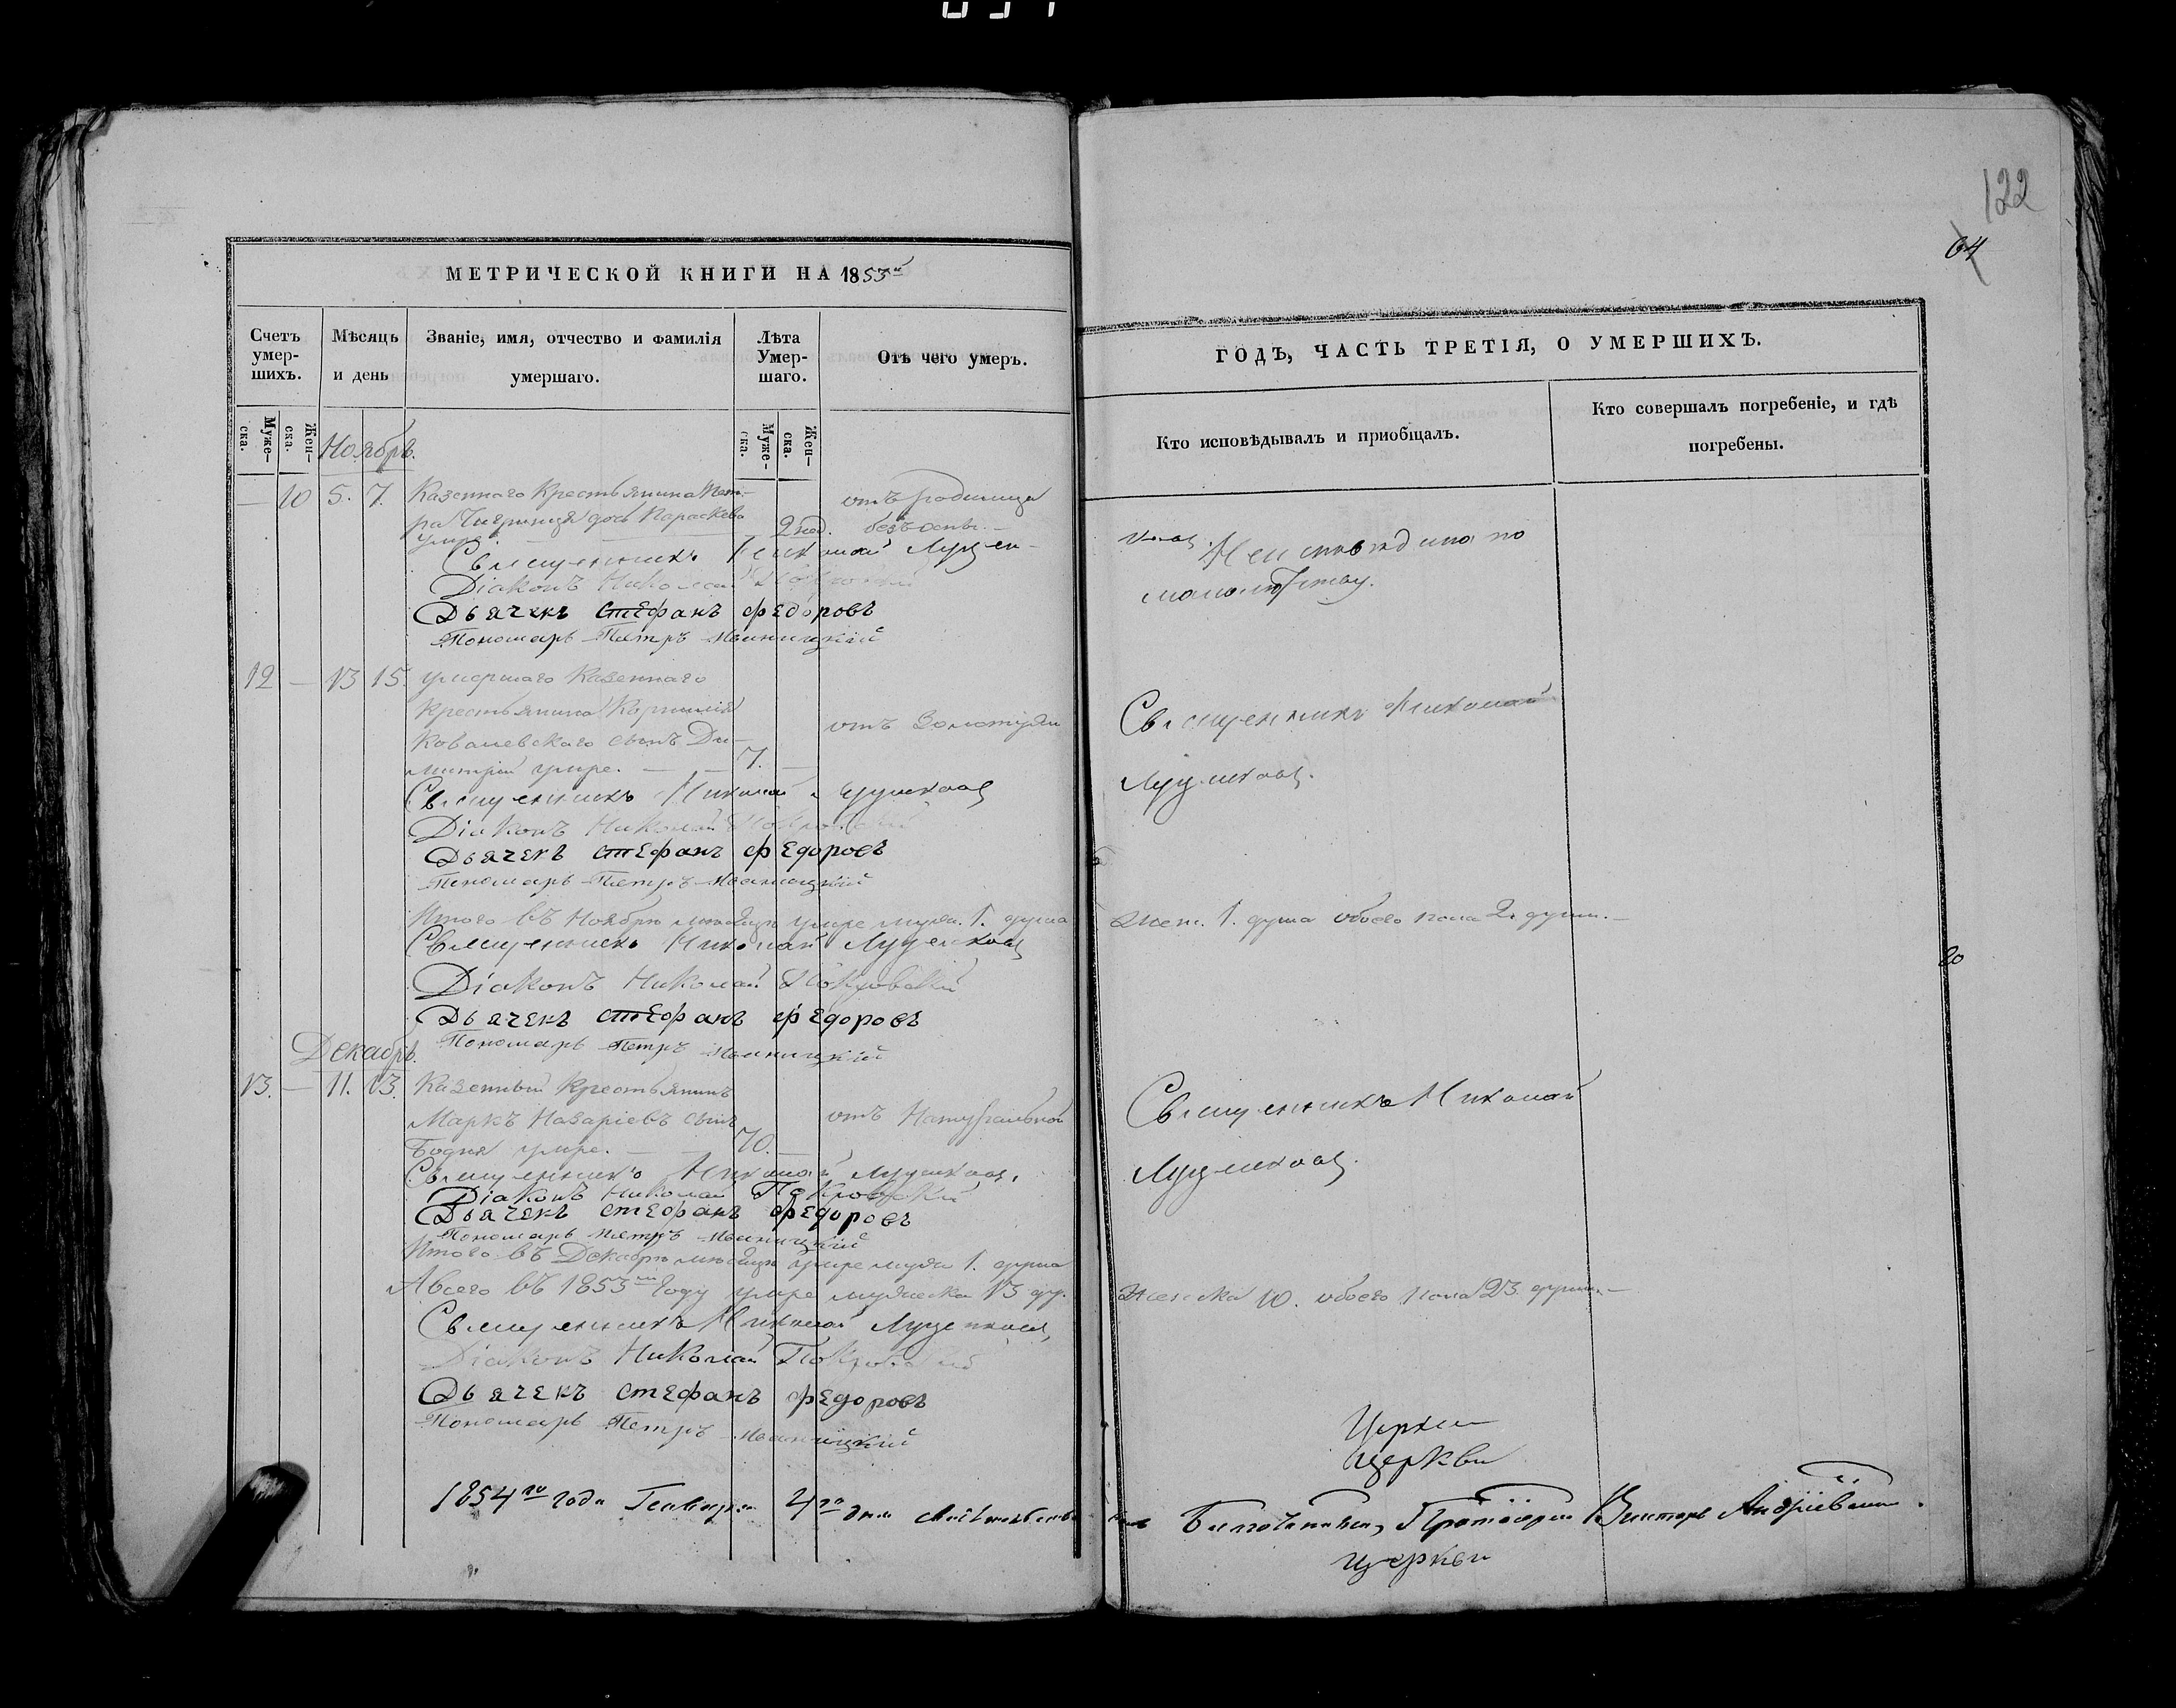 122
64
МЕТРИЧЕСКОЙ КНИГИ НА 1853й
Счетъ умер-шихъ.
Мѣсяцъ и день
Званіе, имя, отчество и фамилія умершаго.
Лѣта Умер-шаго.
Отъ чего умеръ.
Муже-ска.
Жен-ска.
Муже-ска.
Жен-ска.
Ноябрь.
— 10 5. 7. Казеннаго Крестьянина Пет-
ра дочь Параскева 2 нед.
умре.
отъ родимца
безъ оспы. —
Священникъ Николай Луцен-
Діаконъ Николай Покровскій
Дьячекъ Стефанъ Федоровъ
Пономарь Петръ Иваницкій
12 — 13 15. умершаго Казеннаго
Крестьянина Корнилія
Ковалевскаго сынъ Ди-
митрій умре. — — 7. —
отъ Золотухи
Священникъ Николай
Діаконъ Николай Покровскій
Дьячекъ Стефанъ Федоровъ
Пономарь Петръ Иваницкій
Итого въ Ноябрѣ мѣсяцѣ умре мужа. 1. душа
Священникъ Николай
Діаконъ Николай Покровскій
Дьячекъ Стефанъ Федоровъ
Пономарь Петръ Иваницкій
Декабрь.
13. — 11. 13. Казенный Крестьянинъ
Маркъ Назаріевъ сынъ
Бодня умре. — — 70. —
отъ Натуральной
Священникъ Николай
Діаконъ Николай Покровскій
Дьячекъ Стефанъ Федоровъ
Пономарь Петръ Иваницкій
Итого въ Декабрѣ мѣсяцѣ умре мужа 1. душа
А всего въ 1853м году умре мужеска 13 ду.
Священникъ Николай
Діаконъ Николай Покровскій
Дьячекъ Стефанъ Федоровъ
Пономарь Петръ Иваницкій
1854го года Генваря 4го дня
ГОДЪ, ЧАСТЬ ТРЕТІЯ, О УМЕРШИХЪ.
Кто исповѣдывалъ и пріобщалъ.
Кто совершалъ погребеніе, и гдѣ погребены.
Неисповѣдана по
малолѣтству.
Священникъ Николай
Женс. 1. душа обоего пола 2. души. —
Священникъ Николай
Женска 10. обоего пола 23 душъ. —
Церкви
Церкви
Протоіерей Викторъ Андріевскій.
Церкви